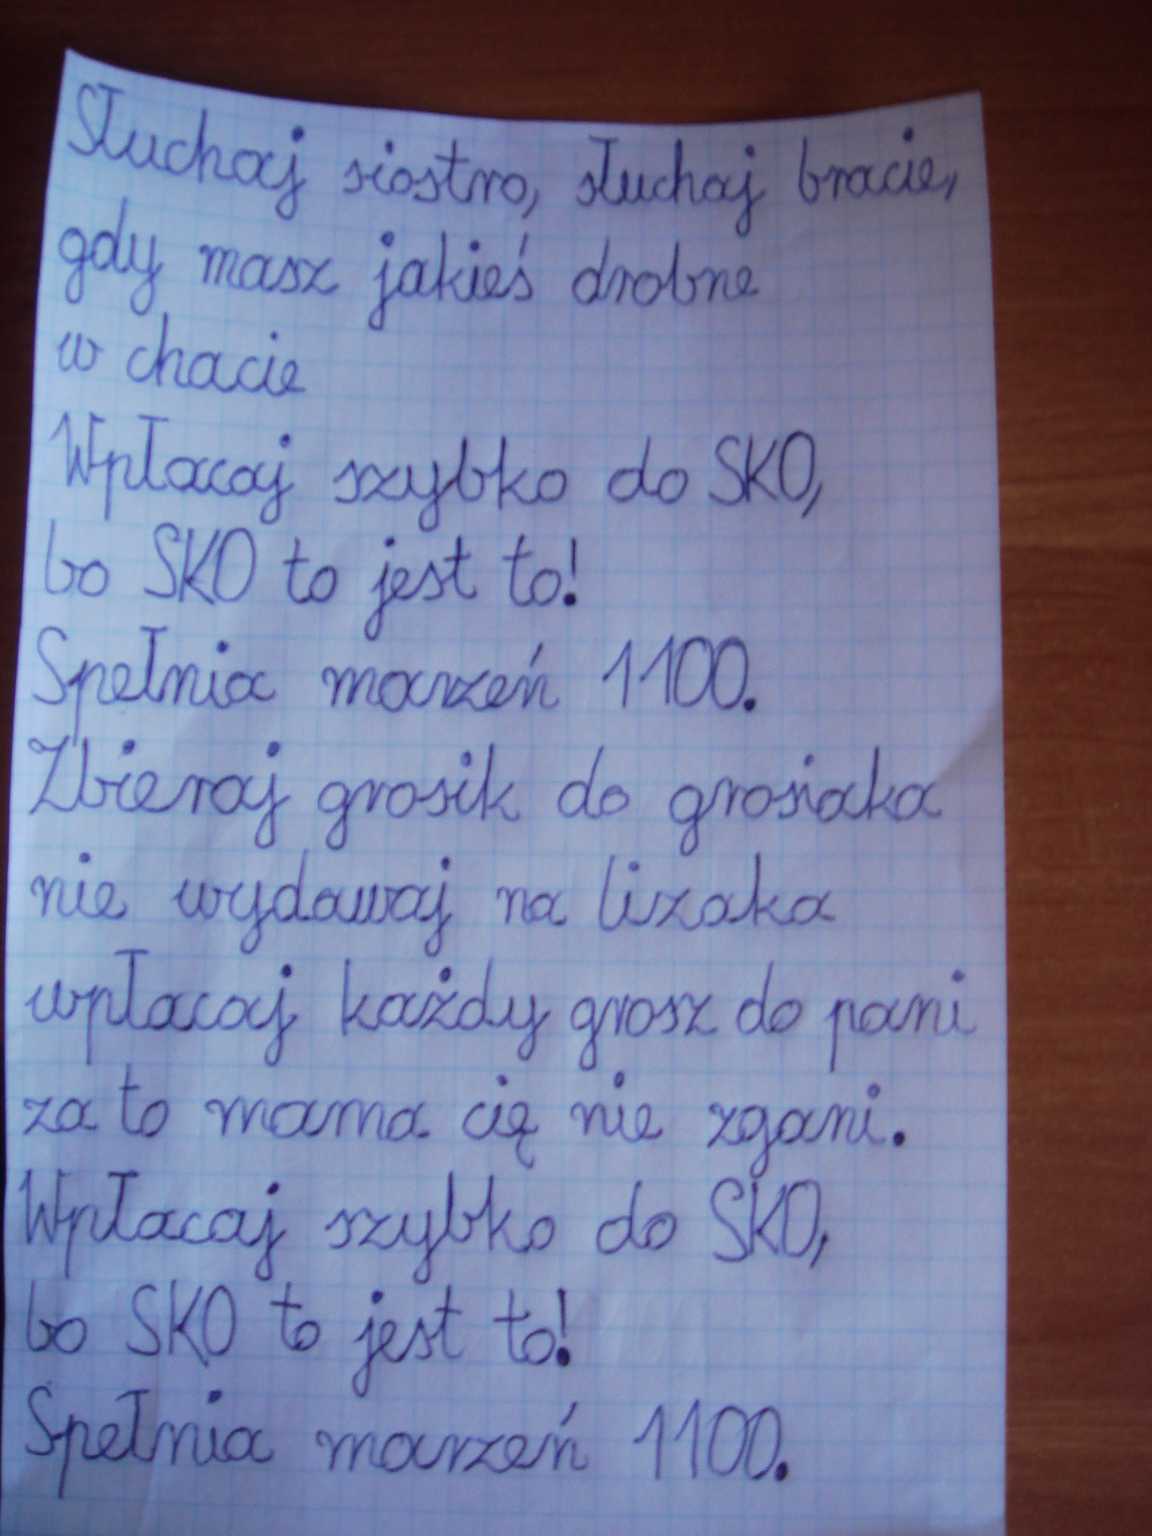 Słuchaj siostro, słuchaj bracie,
gdy masz jakieś drobne
w chacie
Wpłacaj szybko do SKO,
bo SKO to jest to!
Spełnia marzeń 1100.
Zbieraj grosik do grosiaka
nie wydawaj na lizaka
wpłacaj każdy grosz do pani
za to mama cię nie zgani.
Wpłacaj szybko do SKO,
bo SKO to jest to!
Spełnia marzeń 1100.